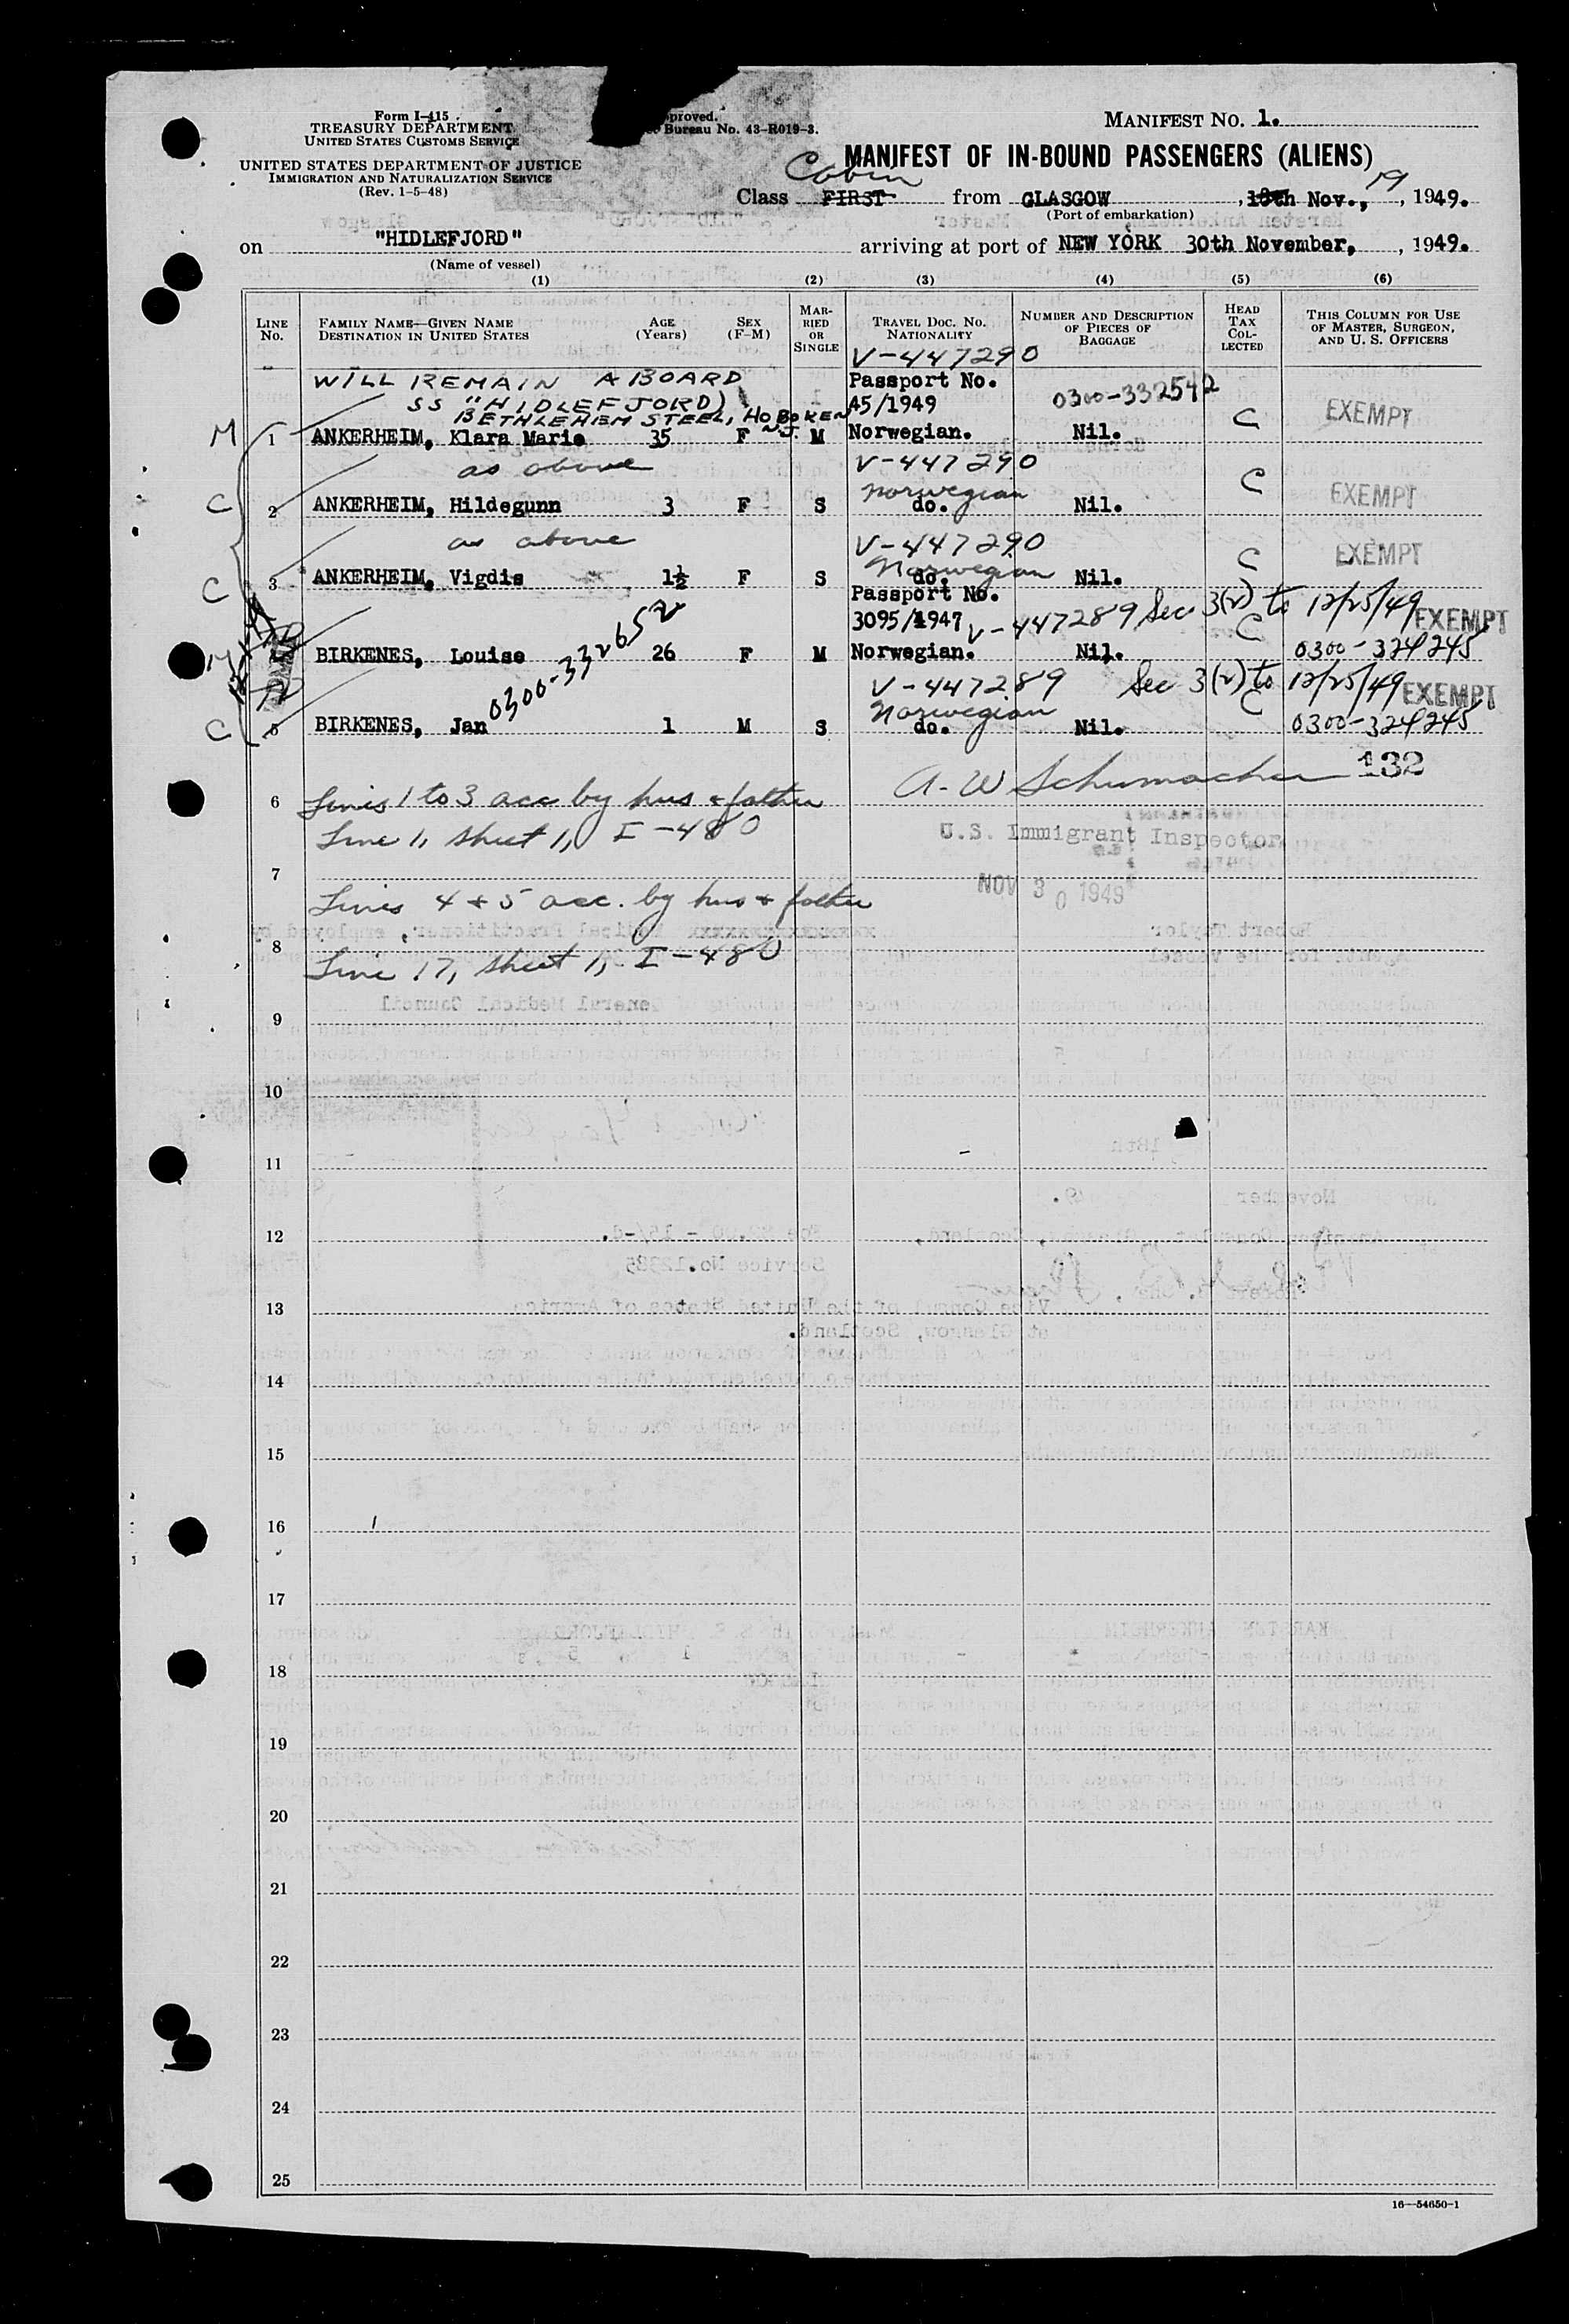 Form I-415
TREASURY DEPARTMENT
UNITED STATES CUSTOMS SERVICE
UNITED STATES DEPARTMENT OF JUSTICE
IMMIGRATION AND NATURALIZATION SERVICE
(Rev. 1-5-48)
proved.
Bureau No. 43-R019-3.
MANIFEST NO. 1.
MANIFEST OF IN-BOUND PASSENGERS (ALIENS)
Cabin
Class FIRST from GLASGOW, 18th Nov., 19, 1949.
(Port of embarkation)
on "HIDLEFJORD" arriving at port of NEW YORK 30th November, 1949.
(Name of vessel)
(1) (2) (3) (4) (5) (6)
LINE No.
FAMILY NAME—GIVEN NAME
DESTINATION IN UNITED STATES
AGE (Years)
SEX (F-M)
MARRIED OR SINGLE
TRAVEL DOC. NO.
NATIONALITY
NUMBER AND DESCRIPTION OF PIECES OF BAGGAGE
HEAD TAX COLLECTED
THIS COLUMN FOR USE OF MASTER, SURGEON, AND U. S. OFFICERS
V-447290
WILL REMAIN ABOARD Passport No.
SS "HIDLEFJORD) 45/1949 0300-332542
BETHLEHEM STEEL, HOBOKEN N.J. C EXEMPT
M 1 ANKERHEIM, Klara Marie 35 F M Norwegian. Nil.
as above V-447290
Norwegian C EXEMPT
C 2 ANKERHEIM, Hildegunn 3 F S do. Nil.
as above V-447290
Norwegian C EXEMPT
C 3 ANKERHEIM, Vigdis 1½ F S do. Nil.
Passport No.
3095/1947 V-447289 Sec 3(2) to 12/25/49 EXEMPT
C
M 4 BIRKENES, Louise 26 F M Norwegian. Nil. 0300-324245
0300-332652
V-447289 Sec 3(2) to 12/25/49 EXEMPT
Norwegian C
C 5 BIRKENES, Jan 1 M S do. Nil. 0300-324245
A. W Schumacher 132
6 Lines 1 to 3 acc by hus & father
Line 1, sheet 1, I-480
U.S. Immigrant Inspector
7
NOV 30 1949
Lines 4 + 5 acc. by hus & father
8
Line 17, sheet 1, I-480
9
10
11
12
13
14
15
16
17
18
19
20
21
22
23
24
25
16—54650-1